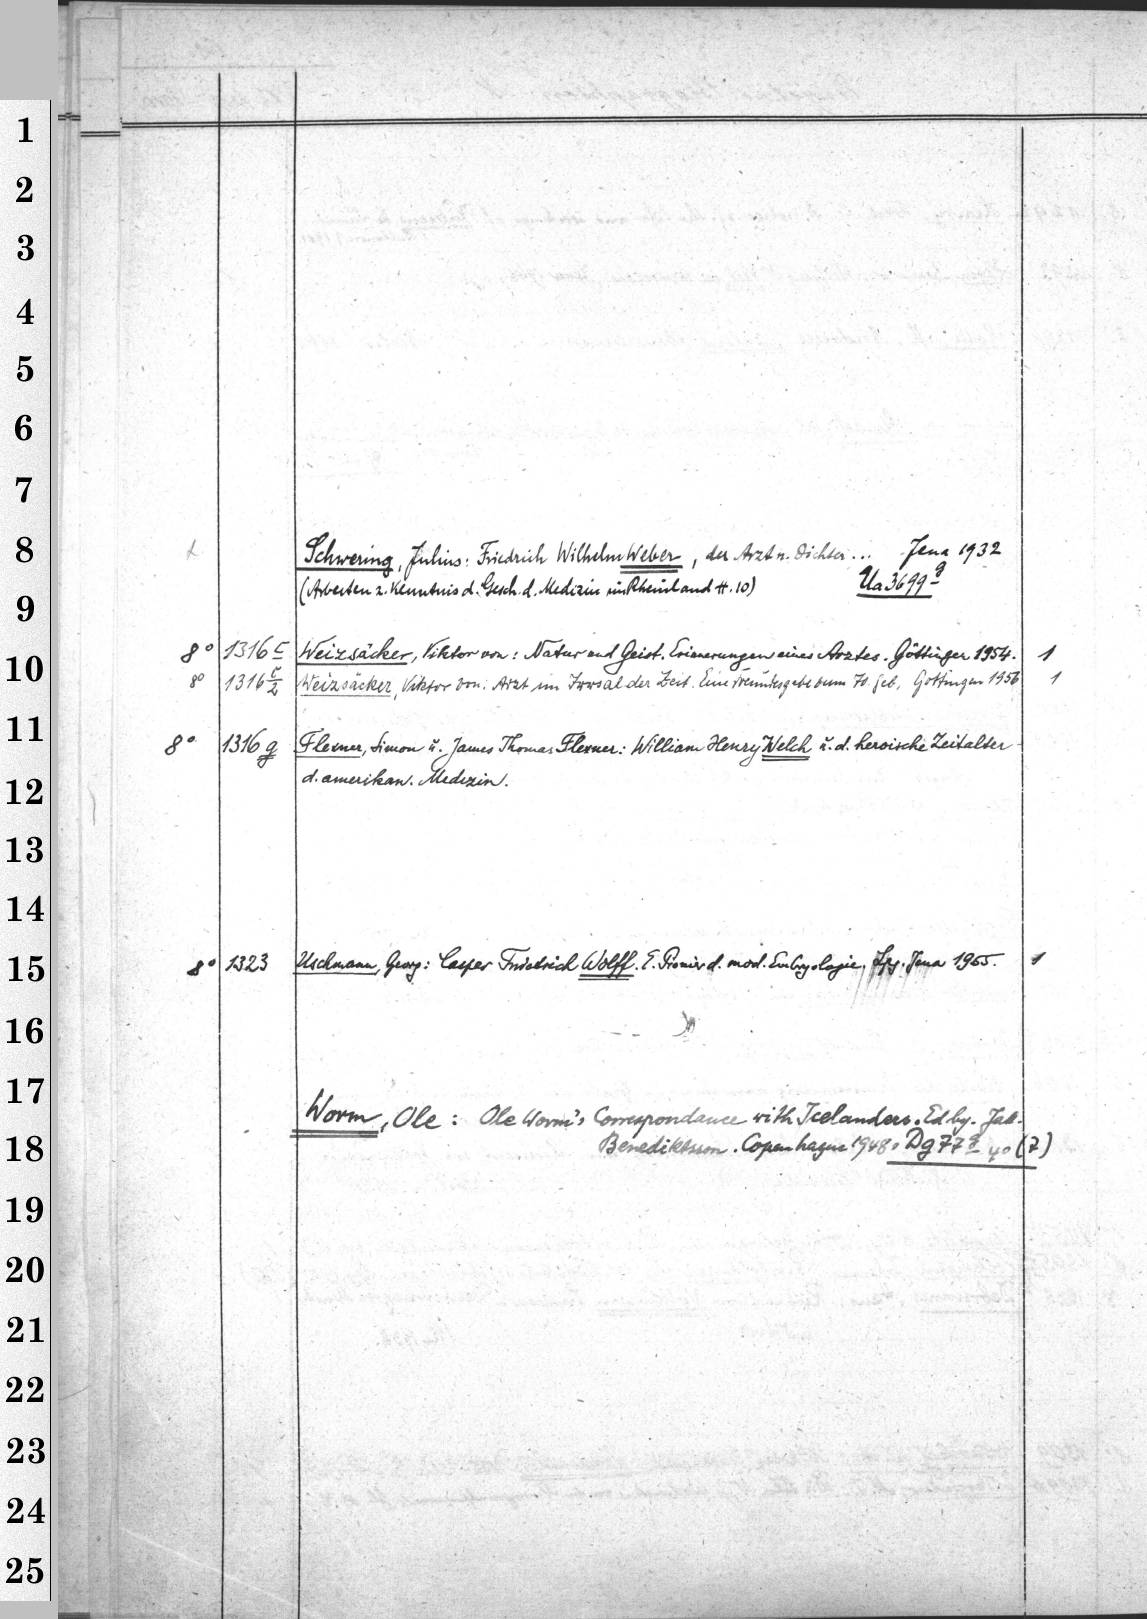 1
2
3
4
5
6
7
8
Schwering, Julius: Friedrich Wilhelm Weber, der Arzt u. Dichter... Jena 1932
(Arbeiten z. Kenntnis d. Gesch. d. Medizin im Rheinland H. 10) Ua 3699 g
9
8° 1316 c Weizsäcker, Viktor von: Natur und Geist. Erinnerungen eines Arztes. Göttingen 1954. 1
10
8° 1316 c/2 Weizsäcker, Viktor von: Arzt im Irrsal der Zeit. Eine Freundesgabe zum 70. Geb. Göttingen 1956 1
11
8° 1316 g Flexner, Simon u. James Thomas Flexner: William Henry Welch u. d. heroische Zeitalter
d. amerikan. Medizin.
12
13
14
15
8° 1323 Uschmann, Georg: Caspar Friedrich Wolff. E. Pionier d. mod. Embryologie. Lpz. Jena 1955. 1
16
17
Worm, Ole: Ole Worm's Correspondance with Icelanders. Ed by. Jak.
18
Benediktsson. Copenhagen 1948. Dg 77 4° (7)
19
20
21
22
23
24
25